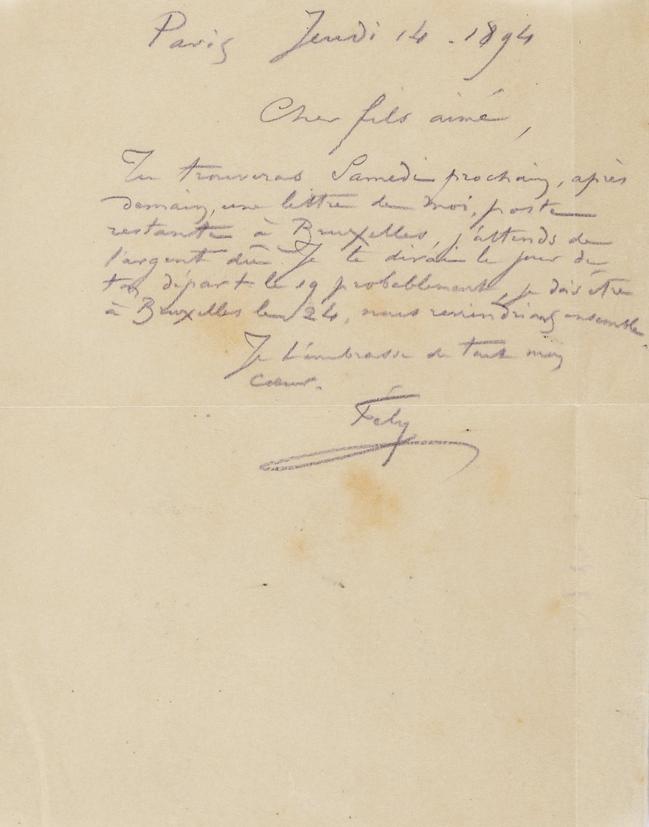 Paris Jeudi 14 . 1894
Cher fils aimé,
Tu trouveras Samedi prochain, après
demain, une lettre de moi, poste
restante à Bruxelles, j'attends de
l'argent dû. Je te dirai le jour de
ton départ le 19 probablement, je dois être
à Bruxelles le 24, nous reviendrions ensemble
Je t'embrasse de tout mon
cœur.
Fély